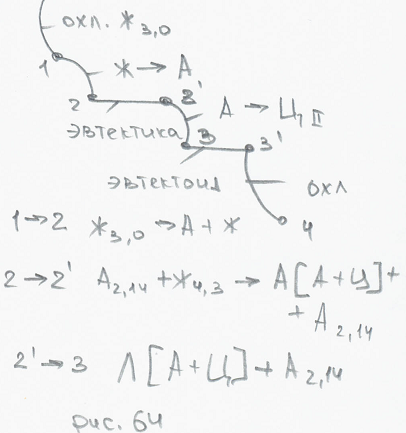 охл. Ж3,0
1
Ж → А
2 2'
А → ЦII
эвтектика 3 3'
эвтектоид охл
4
1→2 Ж3,0 → А + Ж
2→2' А2,14 + Ж4,3 → Л[А+Ц]+
+ А2,14
2'→3 Л[А+Ц]+ А2,14
рис. 64